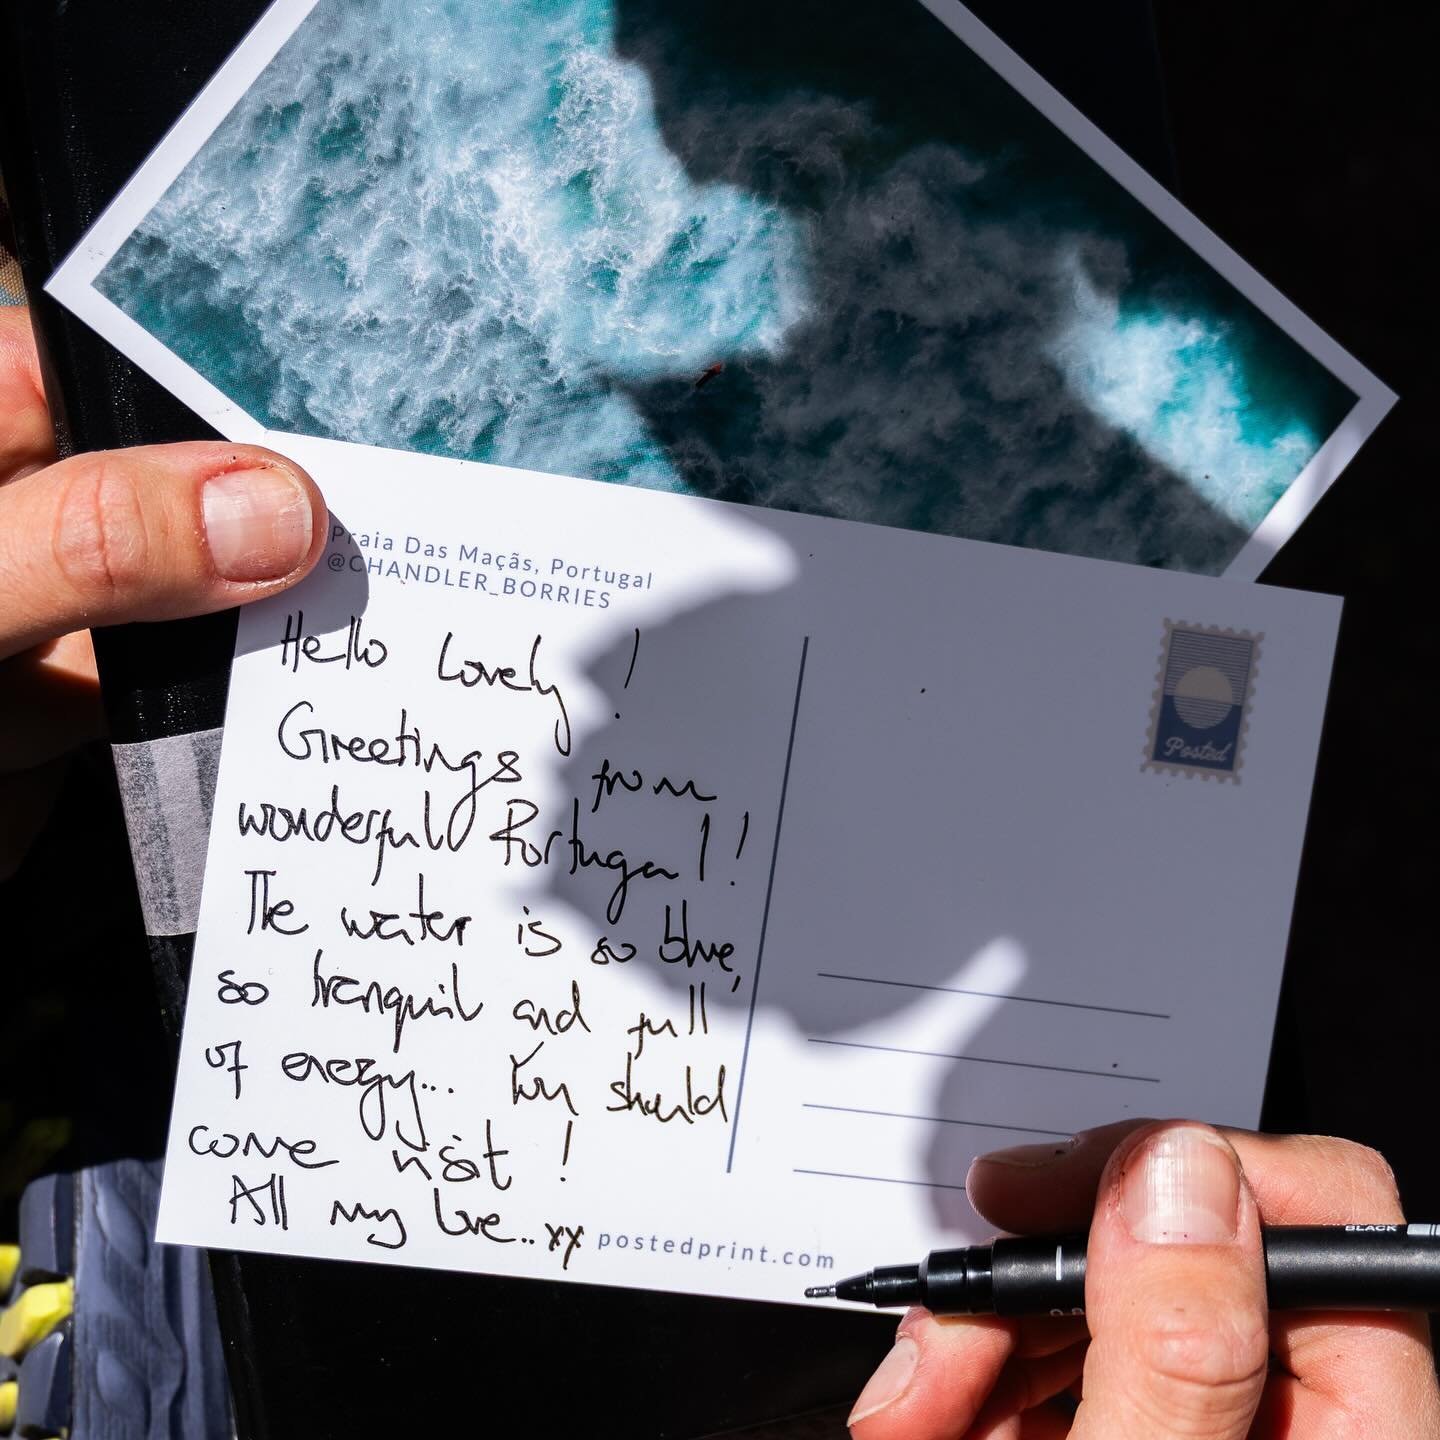 Praia Das Maçãs, Portugal
@CHANDLER_BORRIES
Hello Lovely!
Greetings from
wonderful Portugal!
The water is so blue,
so tranquil and full
of energy... You should
come visit!
All my love..xx
postedprint.com
Posted
BLACK
0.8